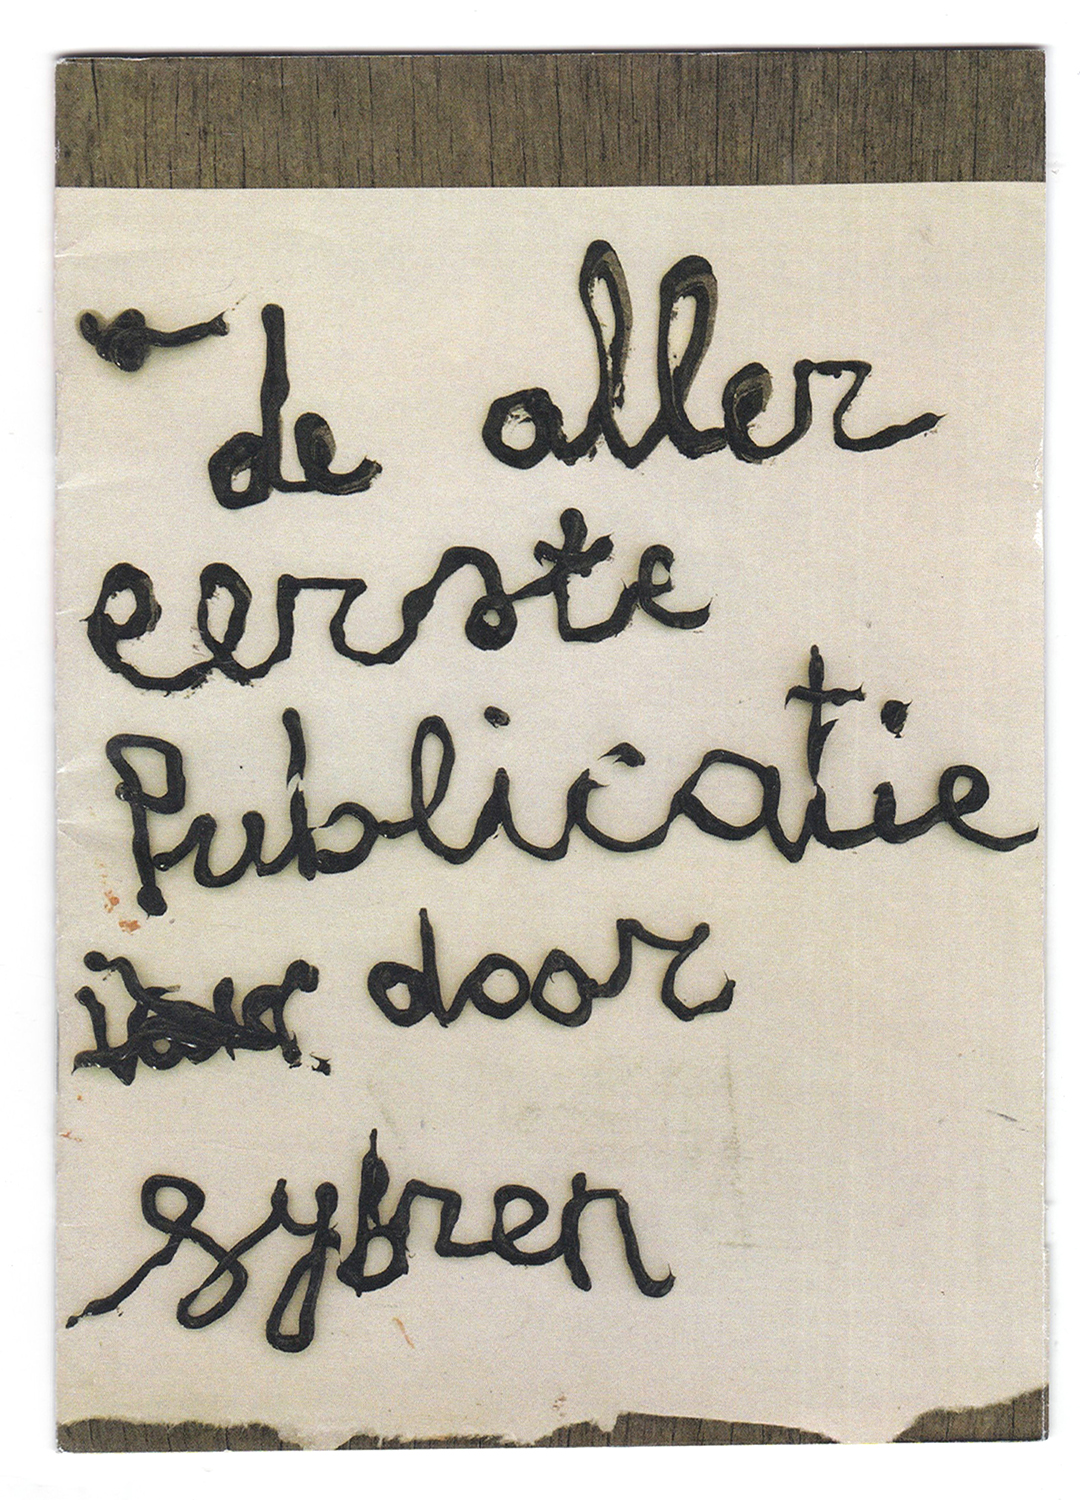 de aller
eerste
Publicatie
door
Sybren